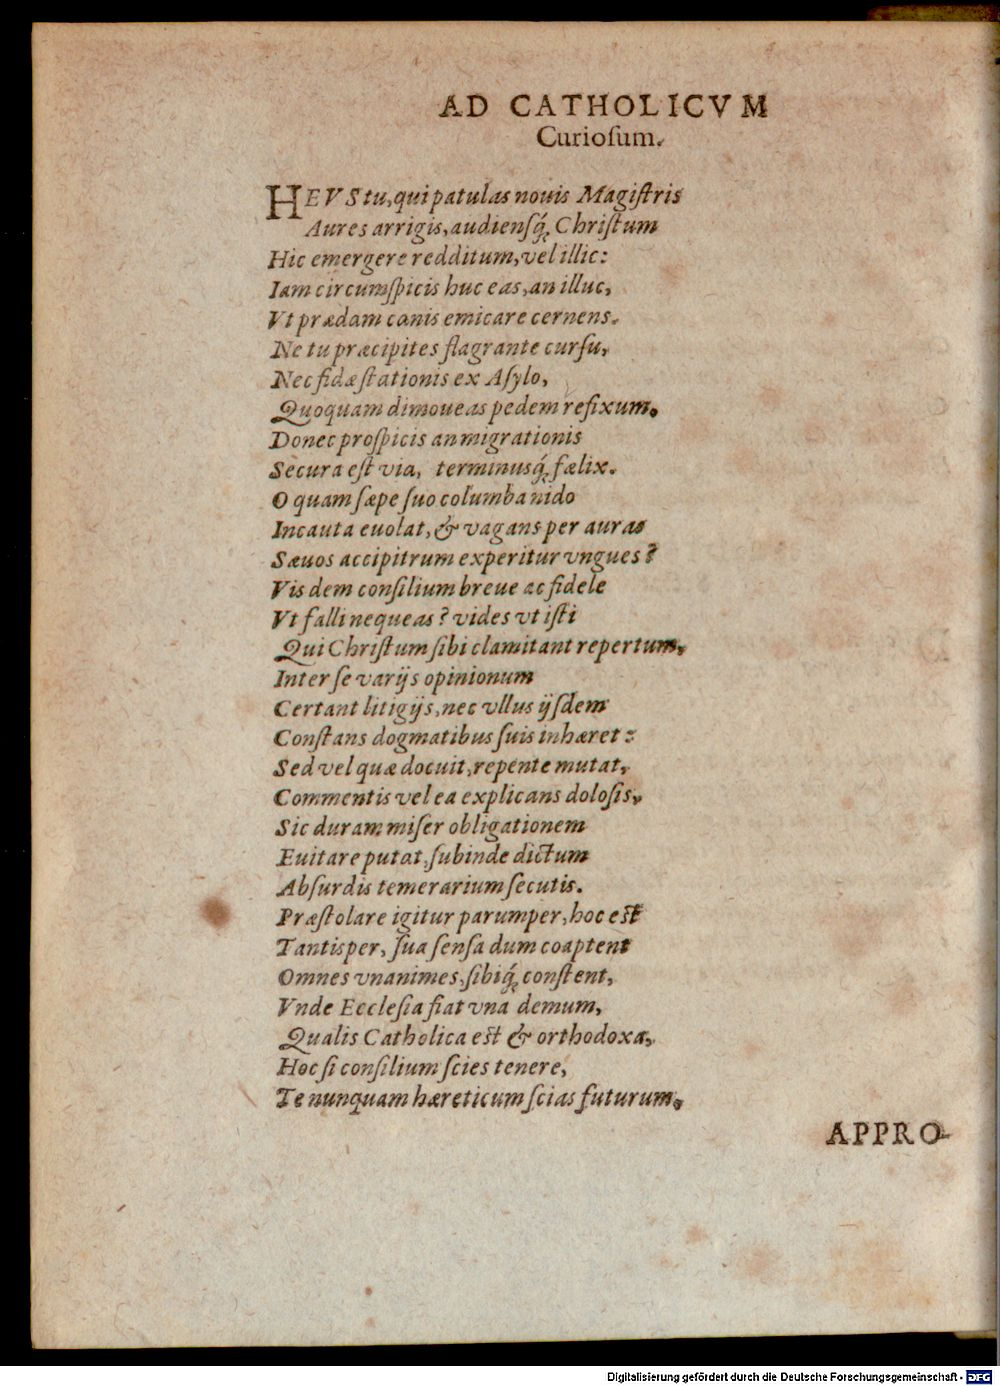 AD CATHOLICVM
Curioſum.
HEVS tu, qui patulas nouis Magiſtris
Aures arrigis, audienſq́; Chriſtum
Hic emergere redditum, vel illic:
Iam circumſpicis huc eas, an illuc,
Vt prædam canis emicare cernens.
Ne tu præcipites flagrante curſu,
Nec fidæ ſtationis ex Aſylo,
Quoquam dimoueas pedem refixum.
Donec proſpicis an migrationis
Secura eſt via, terminuſq́; fælix.
O quam ſæpe ſuo columba nido
Incauta euolat, & vagans per auras
Sæuos accipitrum experitur vngues?
Vis dem conſilium breue ac fidele
Vt falli nequeas? vides vt iſti
Qui Chriſtum ſibi clamitant repertum,
Inter ſe varijs opinionum
Certant litigijs, nec vllus ijſdem
Conſtans dogmatibus ſuis inhæret:
Sed vel quæ docuit, repente mutat,
Commentis vel ea explicans doloſis,
Sic duram miſer obligationem
Euitare putat, ſubinde dictum
Abſurdis temerarium ſecutis.
Præſtolare igitur parumper, hoc eſt
Tantisper, ſua ſenſa dum coaptent
Omnes vnanimes, ſibiq́; conſtent,
Vnde Eccleſia fiat vna demum,
Qualis Catholica eſt & orthodoxa,
Hoc ſi conſilium ſcies tenere,
Te nunquam hæreticum ſcias futurum.
APPRO-
Digitalisierung gefördert durch die Deutsche Forschungsgemeinschaft - DFG